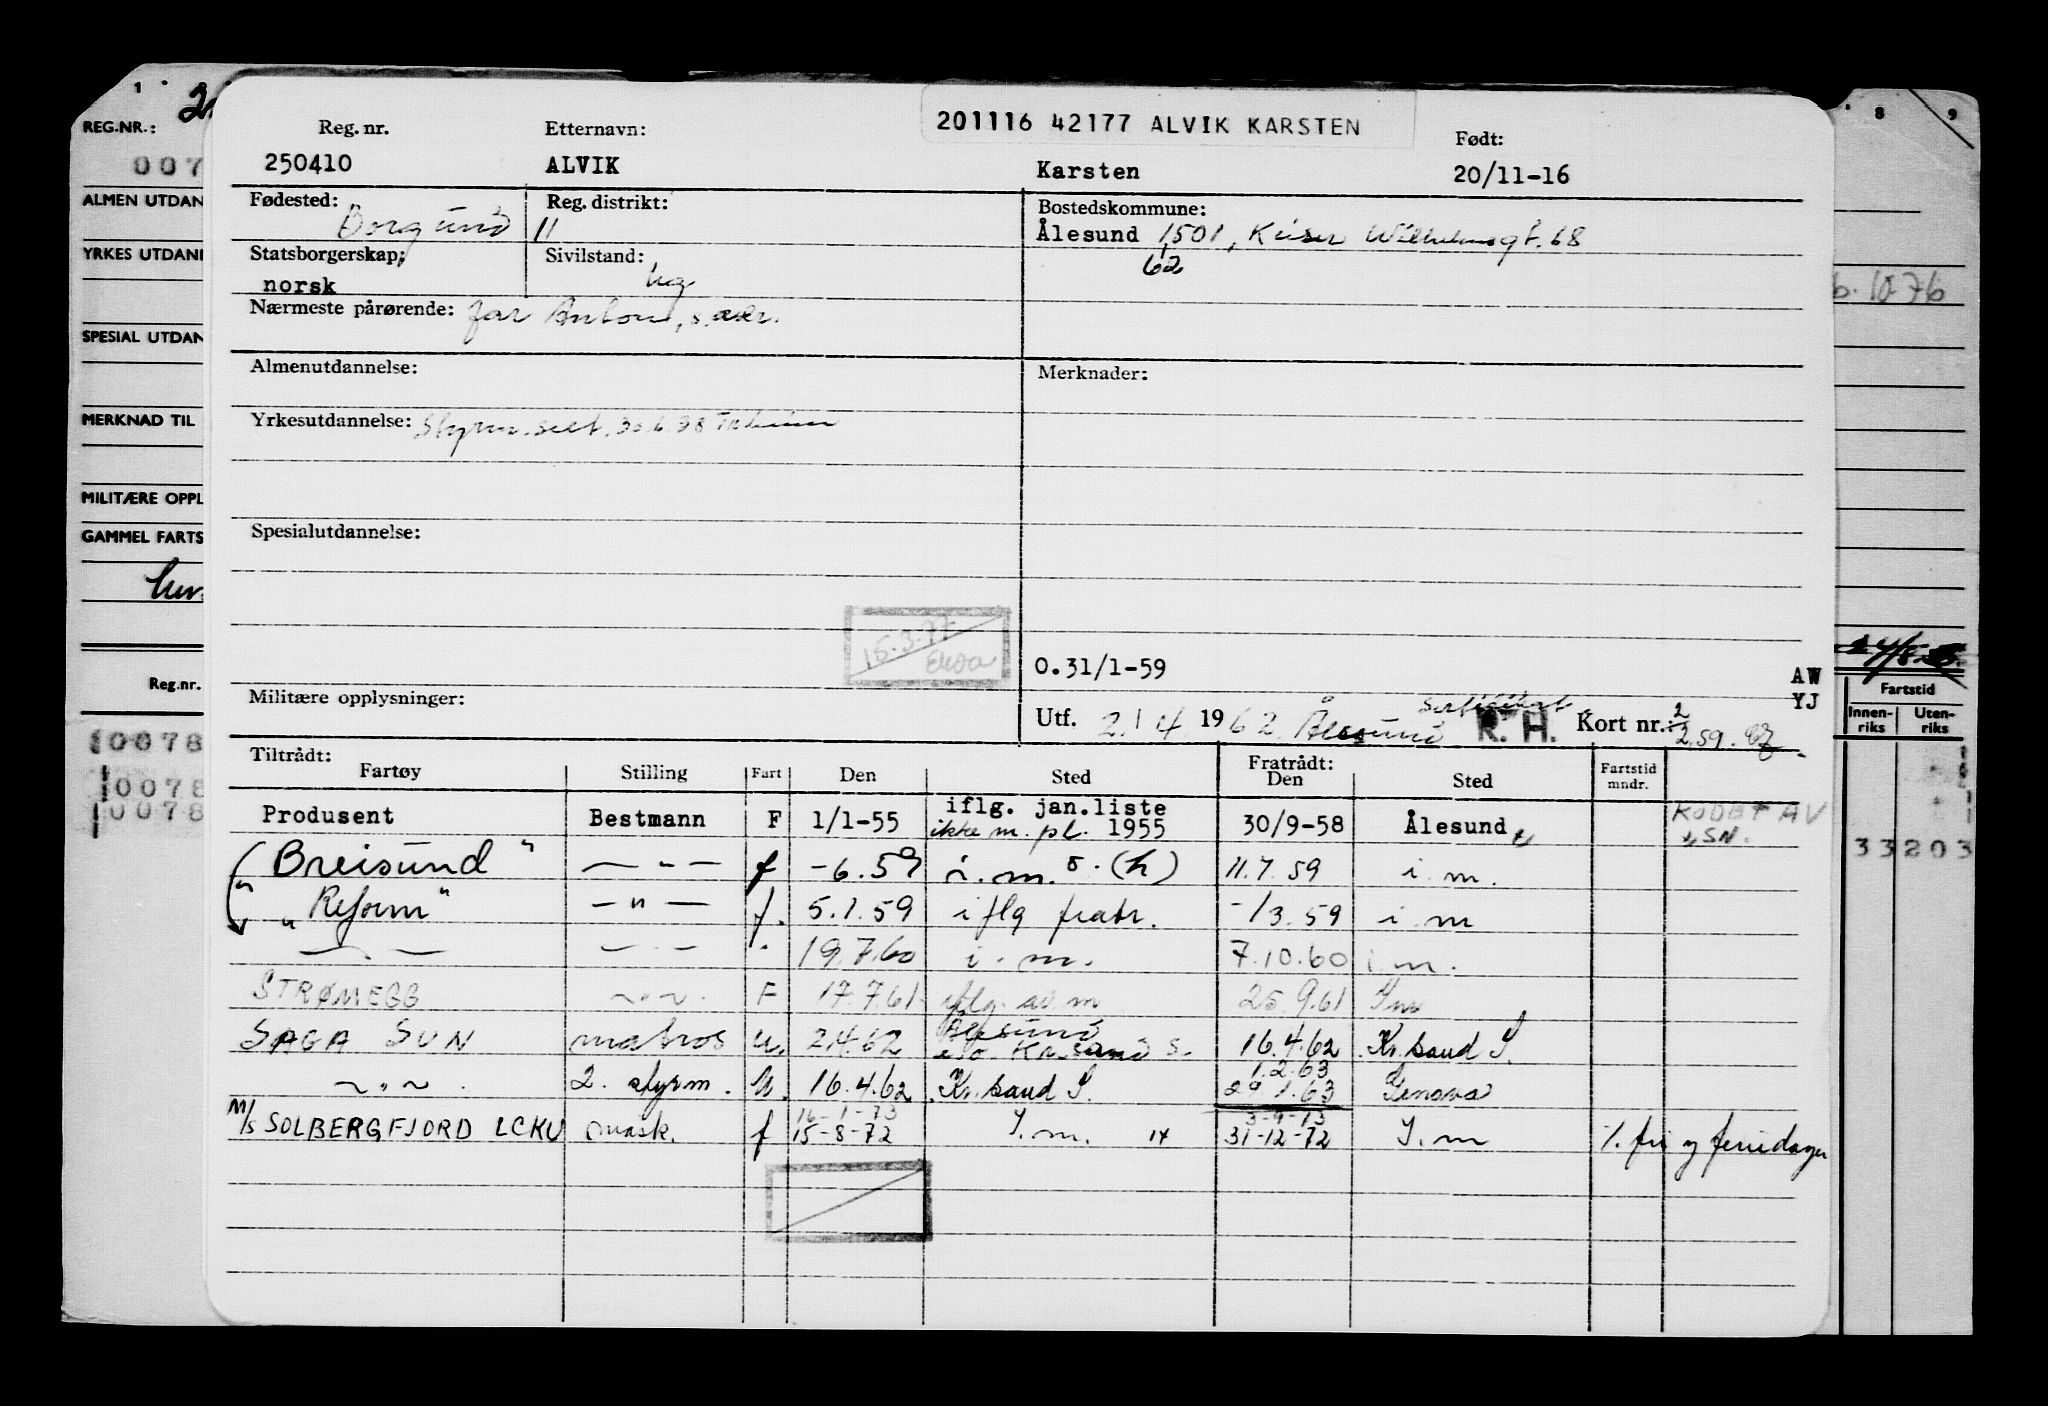 201116 42177 ALVIK KARSTEN
Reg. nr. Etternavn: Født:
250410 ALVIK Karsten 20/11-16
Fødested: Borgund Reg. distrikt: 11 Bostedskommune:
Ålesund 1501, Keiser Wilhelmsgt. 68
62
Statsborgerskap: norsk Sivilstand: ug
Nærmeste pårørende: far Anton,
Almenutdannelse: Merknader:
Yrkesutdannelse: Styrm. sert. 30.6.38
Spesialutdannelse:
15.3.77
0.31/1-59
AW
YJ
Militære opplysninger:
Utf. 2/4 1962 Ålesund R. H. Kort nr. 2
2.59.
Tiltrådt: Fratrådt:
Fartøy Stilling Fart Den Sted Den Sted Fartstid mndr.
Produsent Bestmann F 1/1-55 iflg. jan.liste ikke m. pl. 1955 30/9-58 Ålesund KODET AV SN.
"Breisund" — " — f -6.59 i. m. o. (h) 11.7.59 i. m.
"Reform" — " — f. 5.1.59 iflg fratr. -/3.59 i m
— " — — " — 19.7.60 i. m. 7.10.60 i m.
STRØMEGG — " — F 17.7.61 iflg. m 25.9.61
SAGA SUN matros u. 2.4.62 Ålesund Kr.sand S. 16.4.62 Kr.sand S.
— " — 2. styrm. u. 16.4.62 Kr.sand S. 1.2.63 29.1.63 Genova
M/S SOLBERGFJORD LCKU mask. f 16-1-73 15-8-72 I. m. 3-9-73 31-12-72 I. m % fri og feriedager
1
REG.NR.:
007
ALMEN UTDAN
YRKES UTDAN
SPESIAL UTDAN
MERKNAD TIL
MILITÆRE OPPL
GAMMEL FARTS
Reg.nr.
0078
0078
0078
8 9
6.10.76
Fartstid
Innen-riks Uten-riks
33203